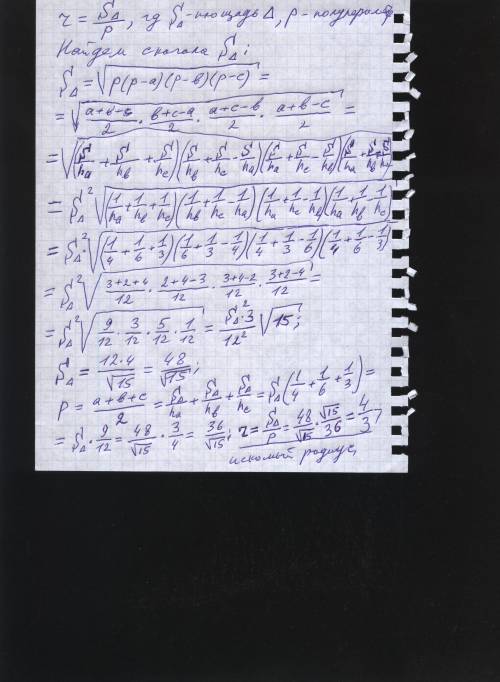 r = S△/p, гд S△-площадь △, p-полуперимет
Найдем сначала S△:
S△ = √(p(p-a)(p-в)(p-c)) =
= √((a+в+c)/2 · (в+c-a)/2 · (a+c-в)/2 · (a+в-c)/2) =
= √((S/ha + S/hв + S/hc)(S/hв + S/hc - S/ha)(S/ha + S/hc - S/hв)(S/ha + S/hв - S/hc))
= S△² √((1/ha + 1/hв + 1/hc)(1/hв + 1/hc - 1/ha)(1/ha + 1/hc - 1/hв)(1/ha + 1/hв - 1/hc))
= S△² √((1/4 + 1/6 + 1/3)(1/6 + 1/3 - 1/4)(1/4 + 1/3 - 1/6)(1/4 + 1/6 - 1/3))
= S△² √((3+2+4)/12 · (2+4-3)/12 · (3+4-2)/12 · (3+2-4)/12) =
= S△² √(9/12 · 3/12 · 5/12 · 1/12) = S△²·3/12² √15;
S△ = 12·4/√15 = 48/√15;
P = (a+в+c)/2 = S△/ha + S△/hв + S△/hc = S△(1/4 + 1/6 + 1/3) =
= S△ · 9/12 = 48/√15 · 3/4 = 36/√15; r = S△/p = 48/√15 · √15/36 = 4/3,
искомый радиус,